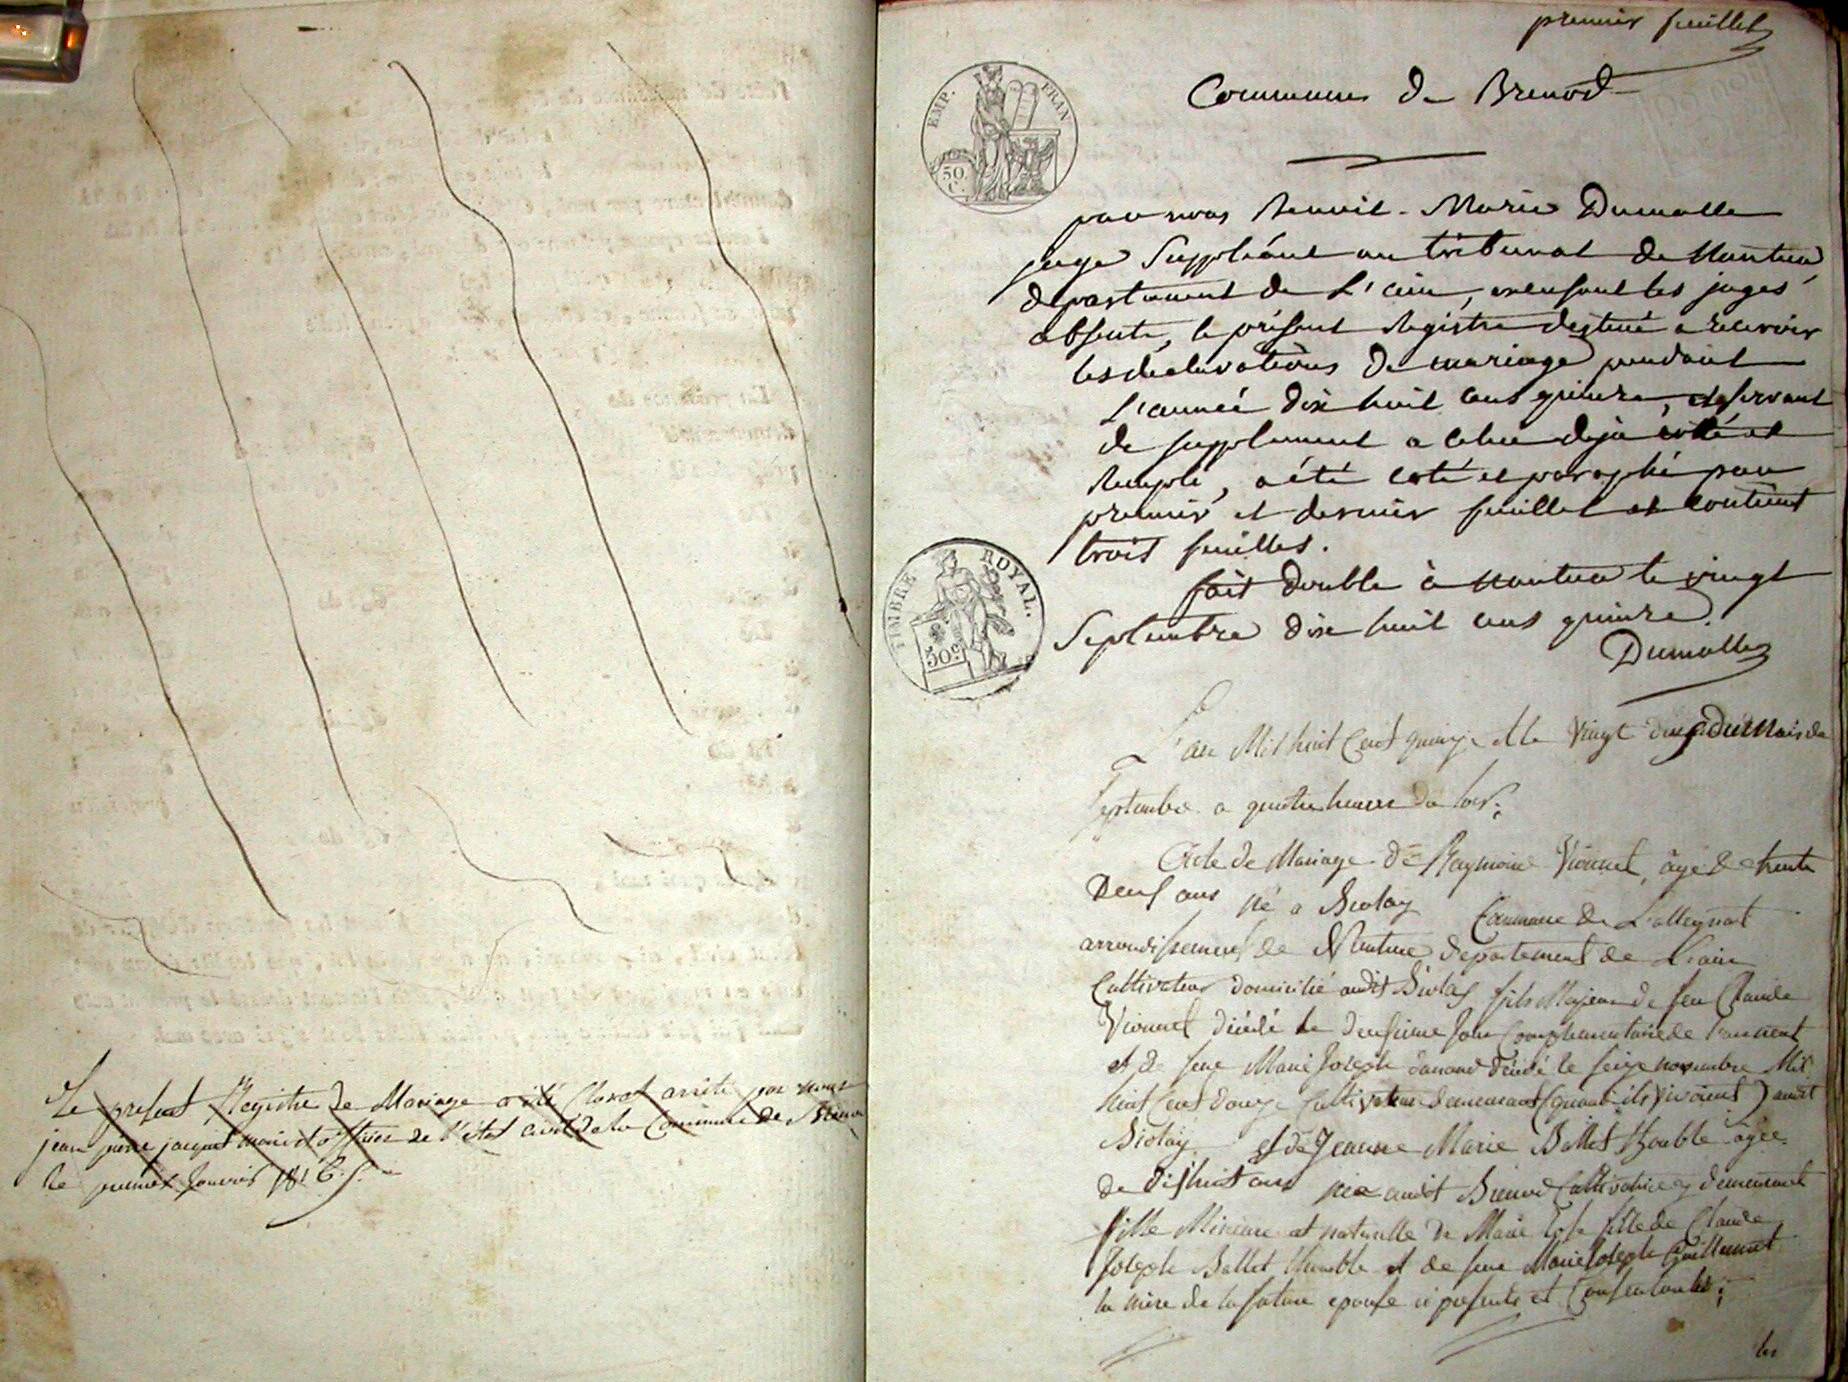 Le present Registre de Mariage a été Clos et arrété par nous
jean pierre jacquet maire et officier de l'état civil de la Commune de Brenod
le premier Janvier 1816.
premier feuillet
Commune de Brenod
EMP. FRAN
50 C.
par nous Benoit-Marie Dumolle
juge Suppléant au tribunal de Nantua
département de L'ain, les juges
absents, le présent Registre destiné a recevoir
les declarations de mariage pendant
L'année dix huit cens quinze, et servant
de supplement a celui déja coté et
Rempli, a été coté et paraphé par
premier et dernier feuillet et contient
trois feuilles.
fait double à Nantua le vingt
Septembre dix huit cens quinze.
Dumolle
TIMBRE ROYAL.
50 c
L'an Mil huit Cent quinze et le Vingt du Mois de
Septembre a quatre heures du soir;
Acte de Mariage de Raymond Vionnet, âgé de trente
Deux ans né a Biolay Commune de Lalleyriat
arrondissement de Nantua Département de L'ain
Cultivateur domicilié audit Biolay fils Majeur de feu Claude
Vionnet décédé le deuxieme Jour Complementaire de
et de feue Marie Joseph décédé le seize novembre Mil
huit Cent douze Cultivateurs demeurant (quand ils vivoient) audit
Biolay et de Jeanne Marie Ballet âgée
de dixhuit ans née audit Brenod Cultivatrice y demeurant
fille Mineure et naturelle de Marie fille de Claude
Joseph Ballet et de feue Marie Joseph Guillermet
la mère de la future epouse ici presente et Consentante;